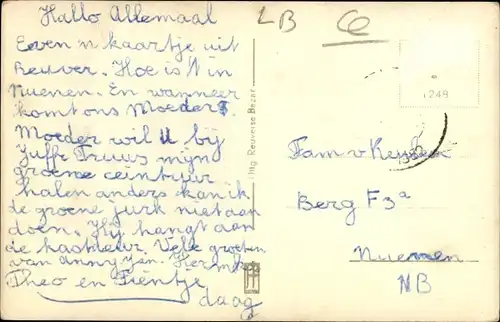 Hallo Allemaal
Even 'n kaartje uit
Reuver. Hoe is 't in
Nuenen. En wanneer
komt ons Moeder?
Moeder wil U bij
Juffr Truus mijn
groene ceintuur
halen anders kan ik
de groene jurk niet aan
doen. Hij hangt aan
de kastdeur. Vele groeten
van Anny, Jan, Herm
Theo en Fientje
daag
LB 6
1249
Uitg. Reuverse Bazar
Fam. v
Berg F3a
Nuenen
NB